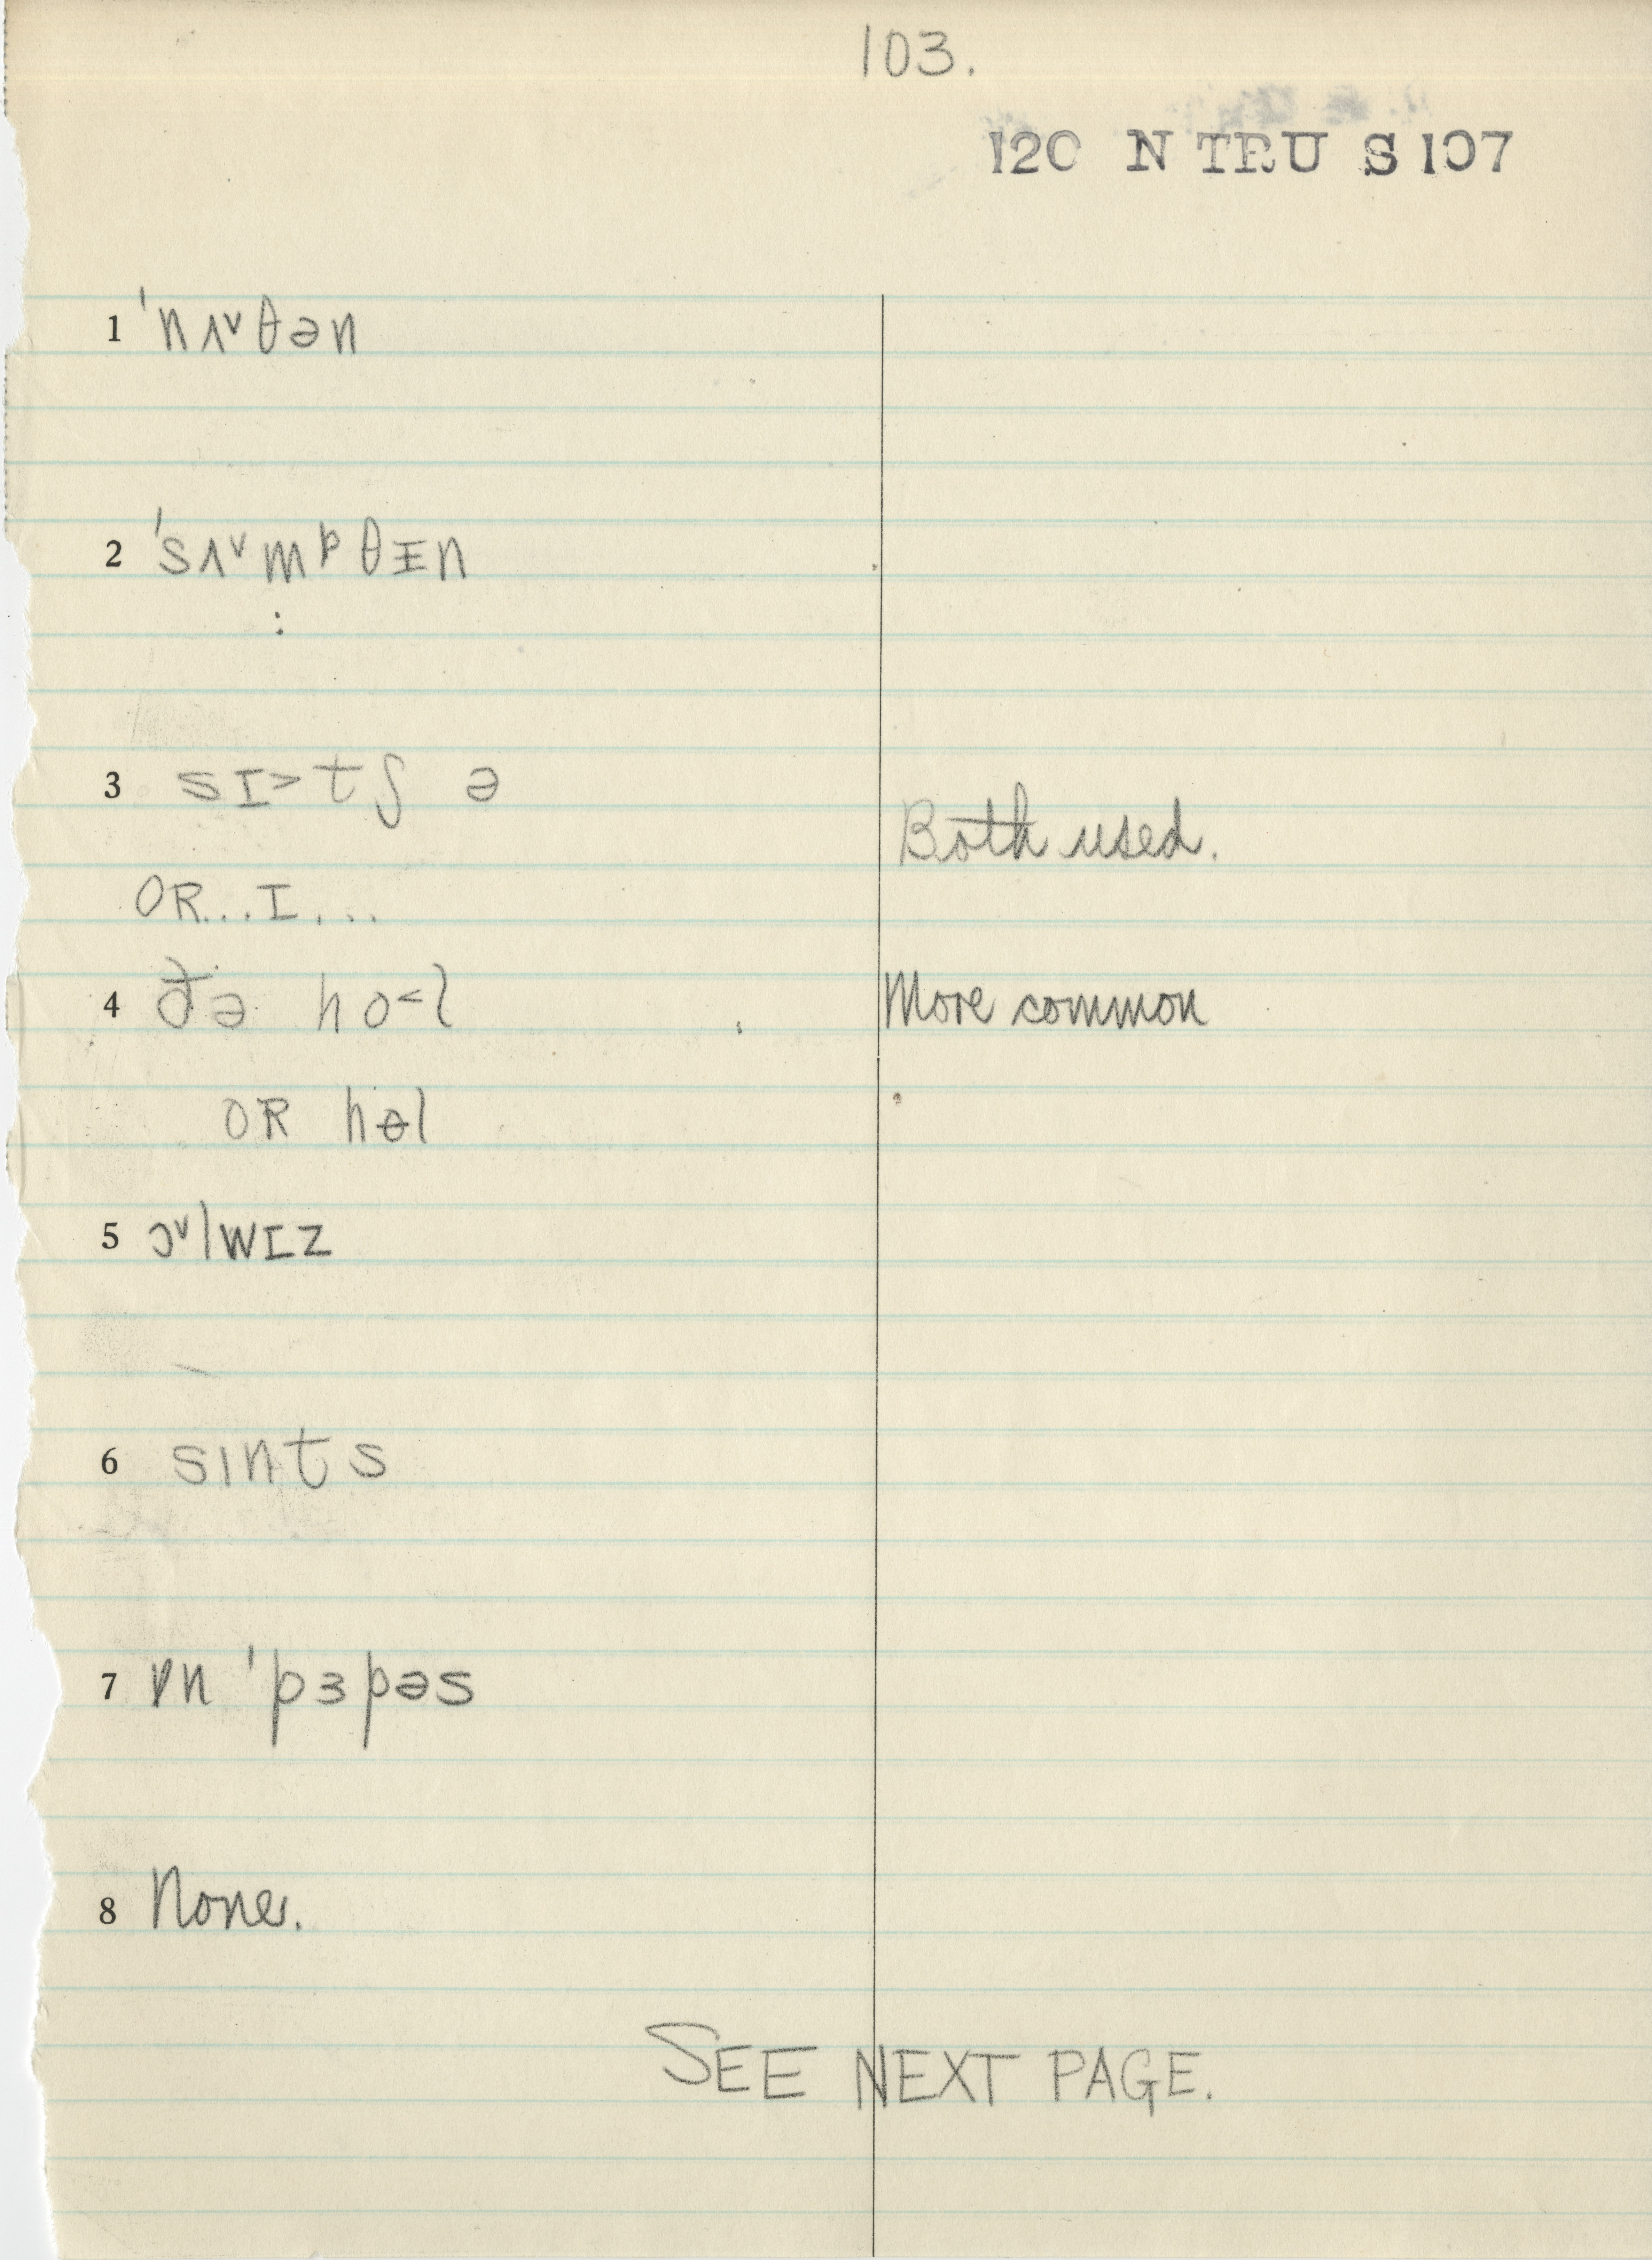 103.
120 N TRU S 107
1 ˈnʌ˅θən
2 ˈsʌ˅mᵖθɪ̵n
:
3 sɪ˃tʃ ə
Both used.
OR...I...
4 ðə ho˂l More common
OR hɵl
5 ɔ˅lwɪz
6 sɪnts
7 ɒn ˈpɜpəs
8 None.
SEE NEXT PAGE.